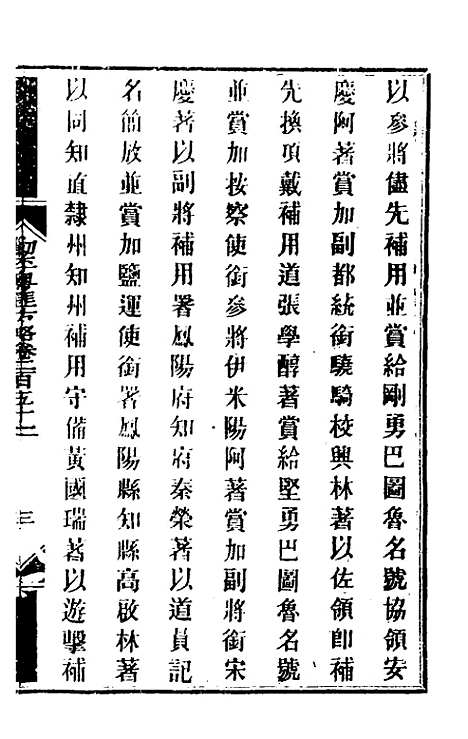 以參將儘先補用並賞給剛勇巴圖魯名號協領安
慶阿著賞加副都統銜驍騎校興林著以佐領即補
先換頂戴補用道張學醇著賞給堅勇巴圖魯名號
並賞加按察使銜參將伊米陽阿著賞加副將銜宋
慶著以副將補用署鳳陽府知府秦榮著以道員記
名簡放並賞加鹽運使銜署鳳陽縣知縣高啟林著
以同知直隸州知州補用守備黃國瑞著以遊擊補
匪方略卷二百五十二
三